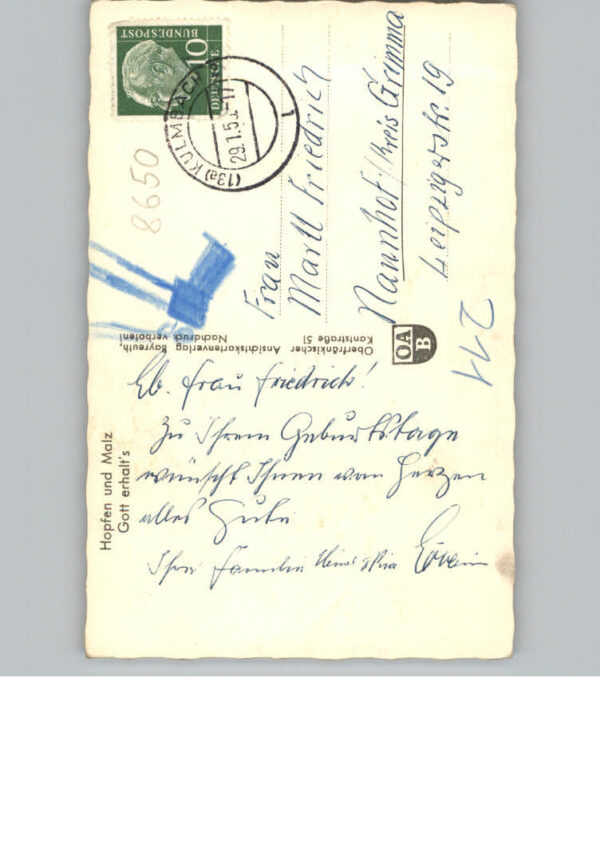 DEUTSCHE
BUNDESPOST
10
(13a) KULMBACH
29.1.5
8650
Frau
Martl Friedrich
Naunhof/Kreis Grimma
Leipzigerstr. 19
211
Oberfränkischer Ansichtskartenverlag Bayreuth,
Kantstraße 51 Nachdruck verboten!
OA
B
Hopfen und Malz
Gott erhalt's
Lb. Frau Friedrich!
Zu Ihrem Geburtstage
wünscht Ihnen von Herzen
alles Gute
Ihre Familie